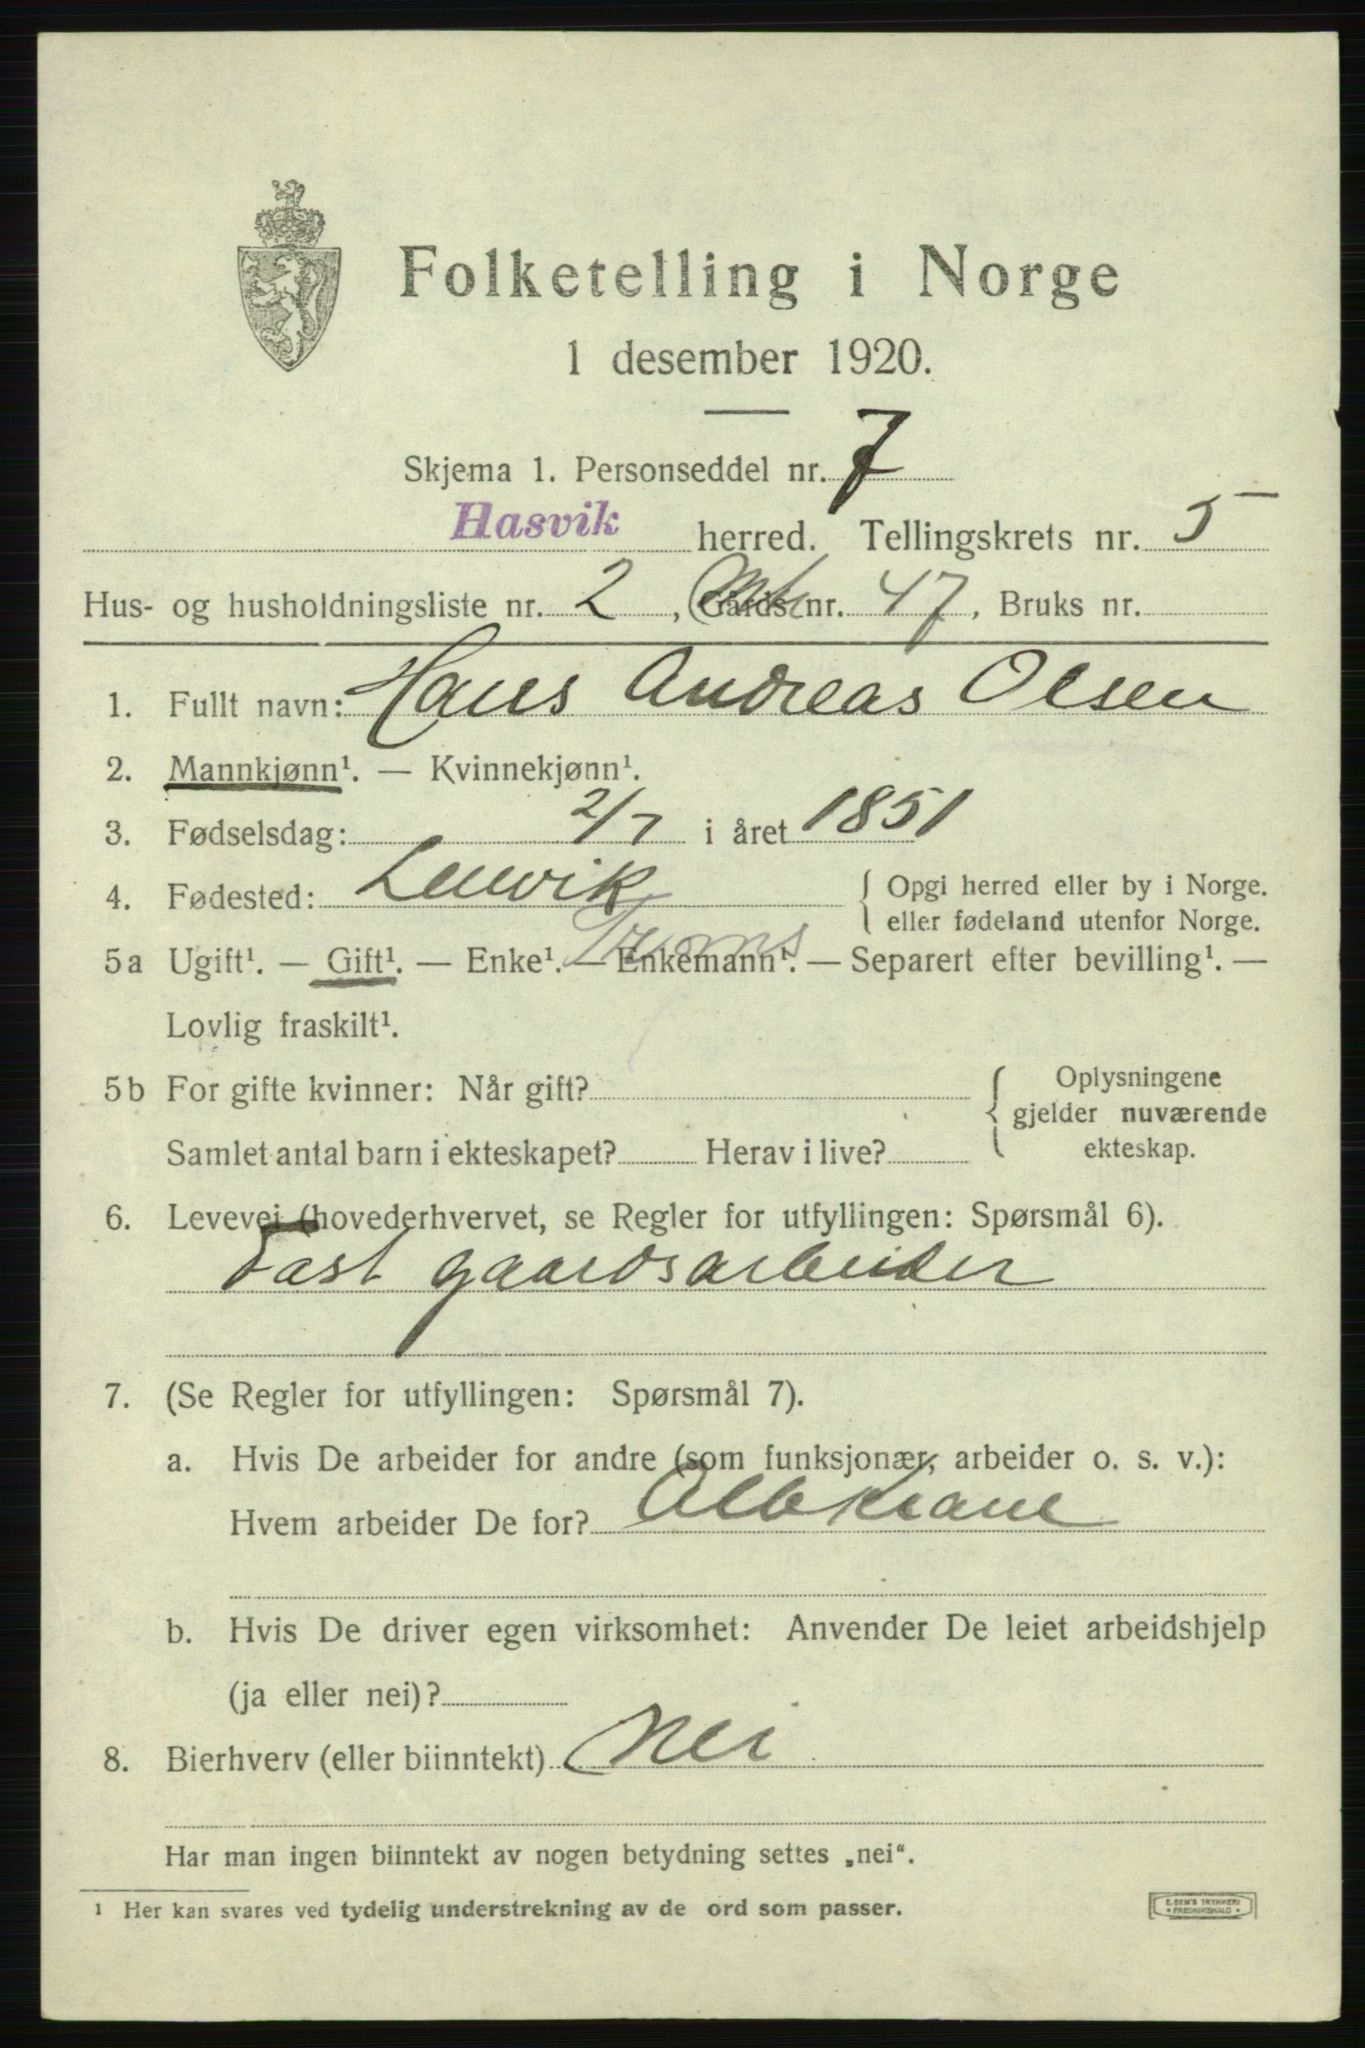 Folketelling i Norge
1 desember 1920.
Skjema 1. Personseddel nr. 7
Hasvik herred. Tellingskrets nr. 5
Hus- og husholdningsliste nr. 2, Gårds nr. 47, Bruks nr.
1. Fullt navn: Hans Andreas Olsen
2. Mannkjønn¹. — Kvinnekjønn¹.
3. Fødselsdag: 2/7 i året 1851
4. Fødested: Lenvik { Opgi herred eller by i Norge.
eller fødeland utenfor Norge.
Troms
5a Ugift¹. — Gift¹. — Enke¹. — Enkemann¹. — Separert efter bevilling¹. —
Lovlig fraskilt¹.
5b For gifte kvinner: Når gift? { Oplysningene
gjelder nuværende
Samlet antal barn i ekteskapet? Herav i live? ekteskap.
6. Levevei (hovederhvervet, se Regler for utfyllingen: Spørsmål 6).
Fast gaardsarbeider
7. (Se Regler for utfyllingen: Spørsmål 7).
a. Hvis De arbeider for andre (som funksjonær, arbeider o. s. v.):
Hvem arbeider De for?
b. Hvis De driver egen virksomhet: Anvender De leiet arbeidshjelp
(ja eller nei)?
8. Bierhverv (eller biinntekt) Nei
Har man ingen biinntekt av nogen betydning settes „nei“.
¹ Her kan svares ved tydelig understrekning av de ord som passer.
E. SEM'S TRYKKERI
* FREDRIKSHALD *